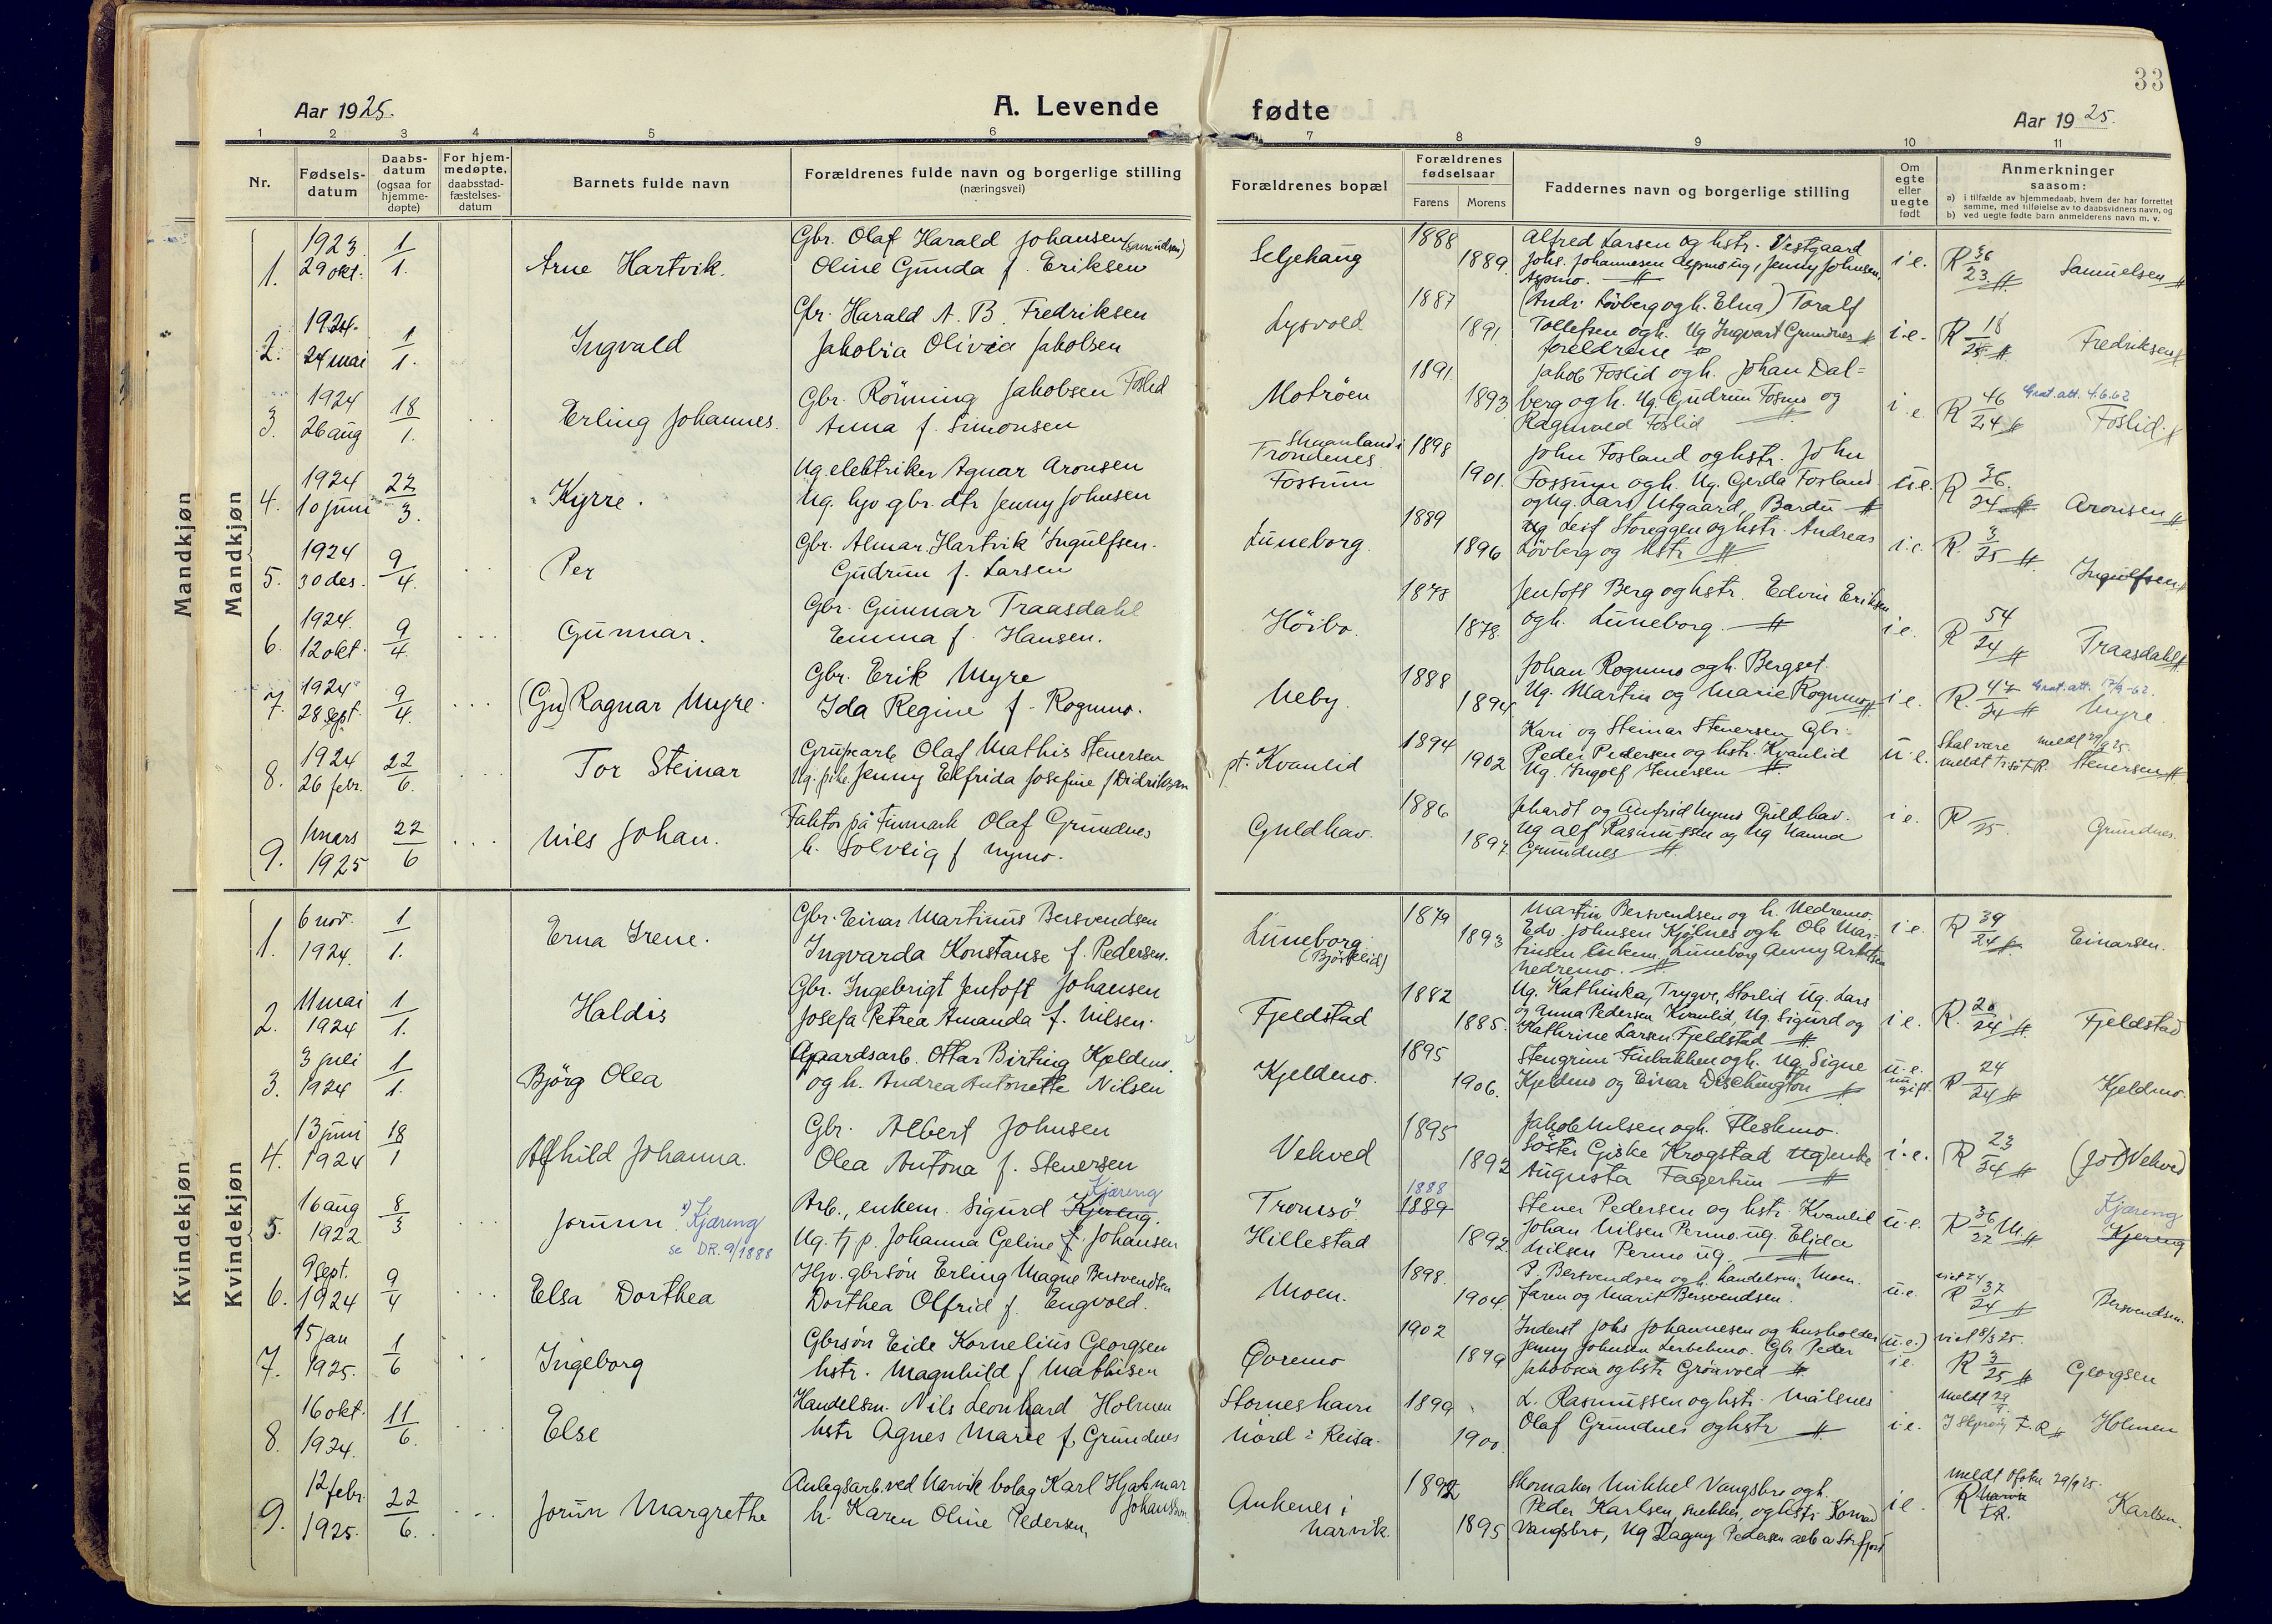 33
Aar 1925.
A. Levende
fødte
Aar 1925.
1 2 3 4 5 6 7 8 9 10 11
Nr.
Fødsels-
datum
Daabs-
datum
(ogsaa for
hjemme-
døpte)
For hjem-
medøpte,
daabsstad-
fæstelses-
datum
Barnets fulde navn
Forældrenes fulde navn og borgerlige stilling
(næringsvei)
Forældrenes bopæl
Forældrenes
fødselsaar
Farens Morens
Faddernes navn og borgerlige stilling
Om
egte
eller
uegte
født
Anmerkninger
saasom:
a) i tilfælde av hjemmedaab, hvem der har forrettet
samme, med tilføielse av to daabsvidners navn, og
b) ved uegte fødte barn anmelderens navn m. v.
Mandkjøn
Mandkjøn
1. 1923. 29 okt. 1/1.
Arne Hartvik.
Gbr. Olaf Harald Johansen (Samuelsen)
Oline Gunda f. Eriksen
Seljehaug
1888 1889.
Alfred Larsen og hstr. Vestgaard
Johs. Johannesen Aspmo ug, Jenny Johnsen,
Aspmo.
i e. R 36/23. Samuelsen
2. 1924. 24 mai 1/1.
Ingvald
Gbr. Harald A. B. Fredriksen
Jakobia Olivia Jakobsen
Lysvold
1887 1891
(Andr. Løvberg og h. Elna) Toralf
Tollefsen og h. Ug Ingvart Grundnes
foreldrene
i.e. R 18/24 Fredriksen
3. 1924 26 aug 18/1.
Erling Johannes.
Gbr. Rönning Jakobsen Foslid
Anna f. Simonsen
Motröen
1891. 1893
Jakob Foslid og h. Johan Dal=
berg og h. Ug Gudrun Fosmo og
Ragnvald Foslid
i.e. R 46/24 Grat. att. 4.6.62 Foslid.
4. 1924 10 juni 22/3.
Kyrre.
Ug. elektriker Agnar Aronsen
Ug. hjv gbr. dtr Jenny Johnsen
Skaanland i
Trondenes
Fossum
1898 1901.
John Fosland og hstr. John
Fossum og h. Ug. Gerda Fosland
og Ug. Lars Utgaard, Bardu
u.e. R 36./24 Aronsen
5. 1924 30 des. 9/4.
Per
Gbr. Almar Hartvik Ingulfsen.
Gudrun f. Larsen
Luneborg.
1889 1896
Ug Leif Storeggen og hstr. Andreas
Lövberg og hstr
i.e. R. 3/25 Ingulfsen
6. 1924. 12 okt. 9/4.
Gunnar.
Gbr. Gunnar Traasdahl
Emma f. Hansen.
Höibo.
1878 1878.
Jentoft Berg og hstr. Edvin Eriksen
og h. Luneborg.
i e. R 54/24 Traasdahl
7. 1924 28 sept. 9/4.
(Gu) Ragnar Myre.
Gbr. Erik Myre
Ida Regine f. Rognmo.
Neby.
1888 1894.
Johan Rognmo og h. Bergset.
Ug. Martin og Marie Rognmo
i e. R. 47/24 Grat. att. 17/9-62. Myre
8. 1924 26 febr. 22/6.
Tor Steinar
Grupearb Olaf Mathis Stenersen
Ug. pike Jenny Elfrida Josefine f Didriksen
pt. Kvanlid
1894 1902
Kari og Steinar Stenersen Gbr.
Peder Pedersen og hstr. Kvanlid
Ug. Ingolf Stenersen
u.e. Skal være meldt 29/9 25. Stenersen
9. 1 mars 1925 22/6
Nils Johan.
Faktor på Finmark Olaf Grundnes
h. Solveig f Nymo.
Guldhav.
1886 1897.
Jehardt og Anfrid Nymo Guldhav.
Ug Alf Rasmussen og Ug Nanna
Grundnes
i e. R /25. Grundnes.
Kvindekjøn
Kvindekjøn
1. 6 nov. 1924. 1/1.
Erna Irene.
Gbr. Einar Martinus Bersvendsen
Ingvarda Konstanse f. Pedersen.
Luneborg.
(Bjørkelid)
1879 1893
Martin Bersvendsen og h. Nedremo.
Edv. Johnsen Kjölnes og h Ole Mar-
tinsen Enkem. Luneborg Anny
Nedremo.
i e. R 39/24 Einarsen.
2. 11 mai 1924 1/1.
Haldis
Gbr. Ingebrigt Jentoft Johansen
Josefa Petrea Amanda f. Nilsen.
Fjeldstad
1882 1885.
Ug. Kathinka, Trygve, Storlid Ug. Lars
og Anna Pedersen Kvanlid Ug. Sigurd og
Kathrine Larsen Fjeldstad
i e. R. 20/24 Fjeldstad
3. 3 juli 1924 1/1.
Björg Olea
Gaardsarb. Ottar Birting Kjeldmo.
og h. Andrea Antonette Nilsen
Kjeldmo.
1895 1906.
Stengrim Finbakken og h. Ug. Signe
Kjeldmo og Einar Dischington
u.e. ugift. R 24/24 Kjeldmo.
4. 13 juni 1924 18/1
Alfhild Johanna.
Gbr. Albert Johnsen
Olea Antona f. Stenersen
Vehved
1895 1892
Jakob Nilsen og h. Fleskmo.
Söster Giske Krogstad Ug) enke
Augusta Fagertun
i.e. R 23/24 (Jo) Vehved
5. 16 aug 1922 8/3
Jorunn. Kjæreng
se DR. 9/1888
Arb., enkem. Sigurd Kjereng. Kjæreng
Ug. tj p. Johanna Geline f. Johansen
Tromsö
Hillestad
1888 1889 1892.
Stener Pedersen og hstr. Kvanlid
Johan Nilsen Permo. ug. Elida
Nilsen Permo ug.
u.e. R 36/22 M Kjæreng Kjereng
6. 9 sept. 1924 9/4
Elsa Dorthea
Hjv. gbrsön Erling Magne Bersvendsen
Dorthea Olfrid f. Engvold.
Moen.
1898. 1904.
P. Bersvendsen og h. handelsm. Moen.
Faren og Marit Bersvendsen.
u.e. viet 24 R 37/24 Bersvendsen.
7. 15 jan 1925. 1/6
Ingeborg
Gbrsön Eide Kornelius Georgsen
hstr. Magnhild f Mathisen
Övremo
1902 1899
Inderst Johs Johannesen og husholder
Jenny Johnsen Lerbekmo. Gbr Peder
Jakobsen og hstr Grönvold
(u.e.) i.e. viet 8/3 25. R 3/25 Georgsen
8. 16 okt. 1924. 11/6.
Else
Handelsm. Nils Leonhard Holmen
hstr Agnes Marie f. Grundnes
Storneshavn
Nord-Reisa.
1899 1900.
L. Rasmussen og hstr. Målsnes
Olaf Grundnes og hstr
i e. meldt 29/9. Holmen
9. 12 febr. 1925. 22/6.
Jorun Margrethe
Anlegsarb. ved Narvik bolag Karl Hjalmar
Johansson.
h. Karen Oline Pedersen,
Ankenes i
Narvik.
1892 1895
Skomaker Mikkel Vangsbro og h.
Peder Karlsen, snekker, og hstr. Konrad
Vangsbro, Ug Dagny Pedersen
i e. meldt Ofoten 29/9 25. R Narvik Karlsen.